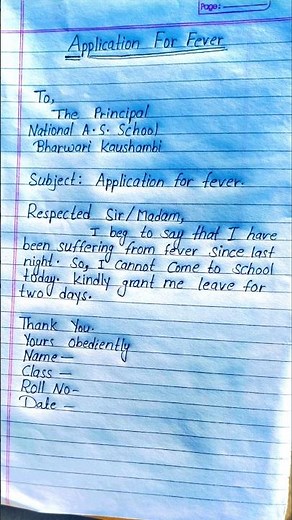 Page:
Application For Fever
To,
The Principal
National A.S. School
Bharwari Kaushambi
Subject: Application for fever.
Respected Sir/Madam,
I beg to say that I have
been suffering from fever since last
night. So, I cannot come to school
today. Kindly grant me leave for
two days.
Thank You.
Yours Obediently
Name—
Class —
Roll No-
Date —